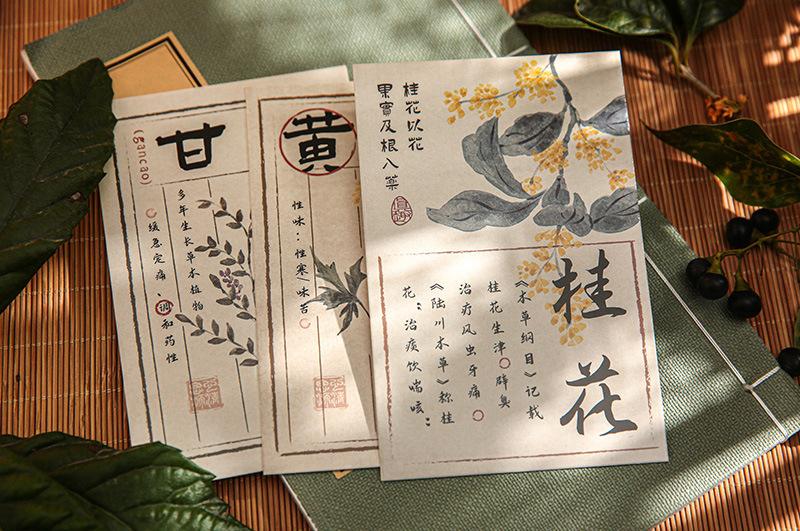 甘
(gancao)
多年生长草本植物
缓急定痛、调和药性
黄
性味：性寒味苦
桂花以花
果實及根入藥
桂花
《本草纲目》记载
桂花生津辟臭
治疗风虫牙痛
《陆川本草》称桂
花：治痰饮喘咳：